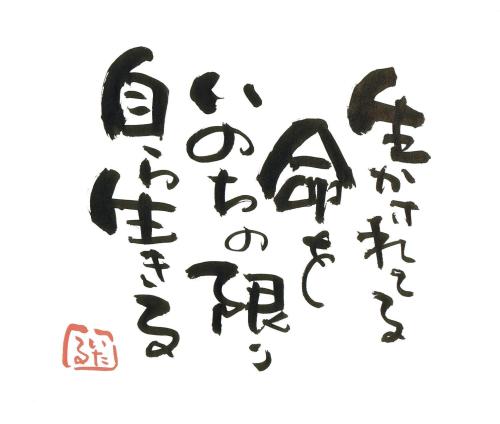 生かされてる
命を
いのちの限り
自ら生きる